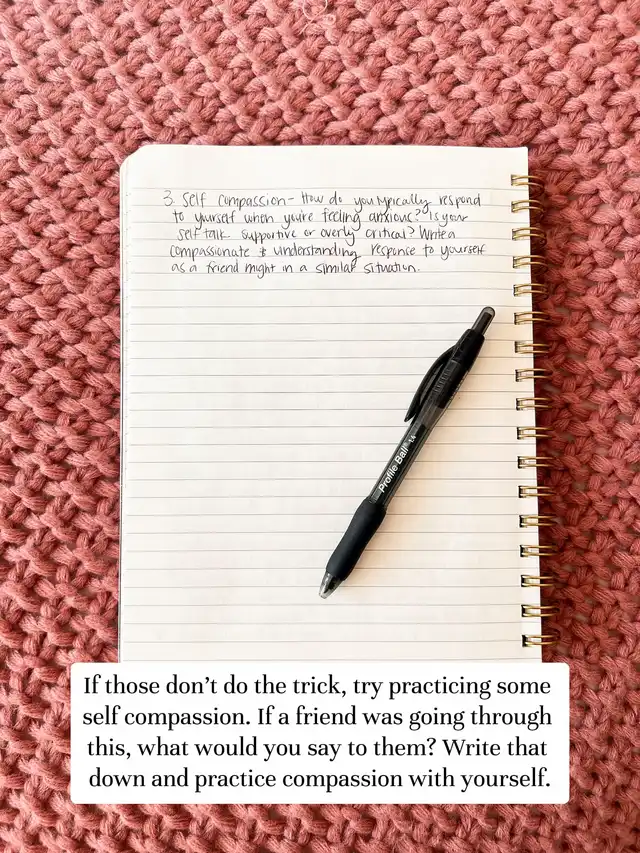 3. Self compassion - How do you typically respond
to yourself when you're feeling anxious? Is your
self talk supportive or overly critical? Write a
compassionate & understanding response to yourself
as a friend might in a similar situation.
Profile Ball® 1.4
If those don't do the trick, try practicing some
self compassion. If a friend was going through
this, what would you say to them? Write that
down and practice compassion with yourself.